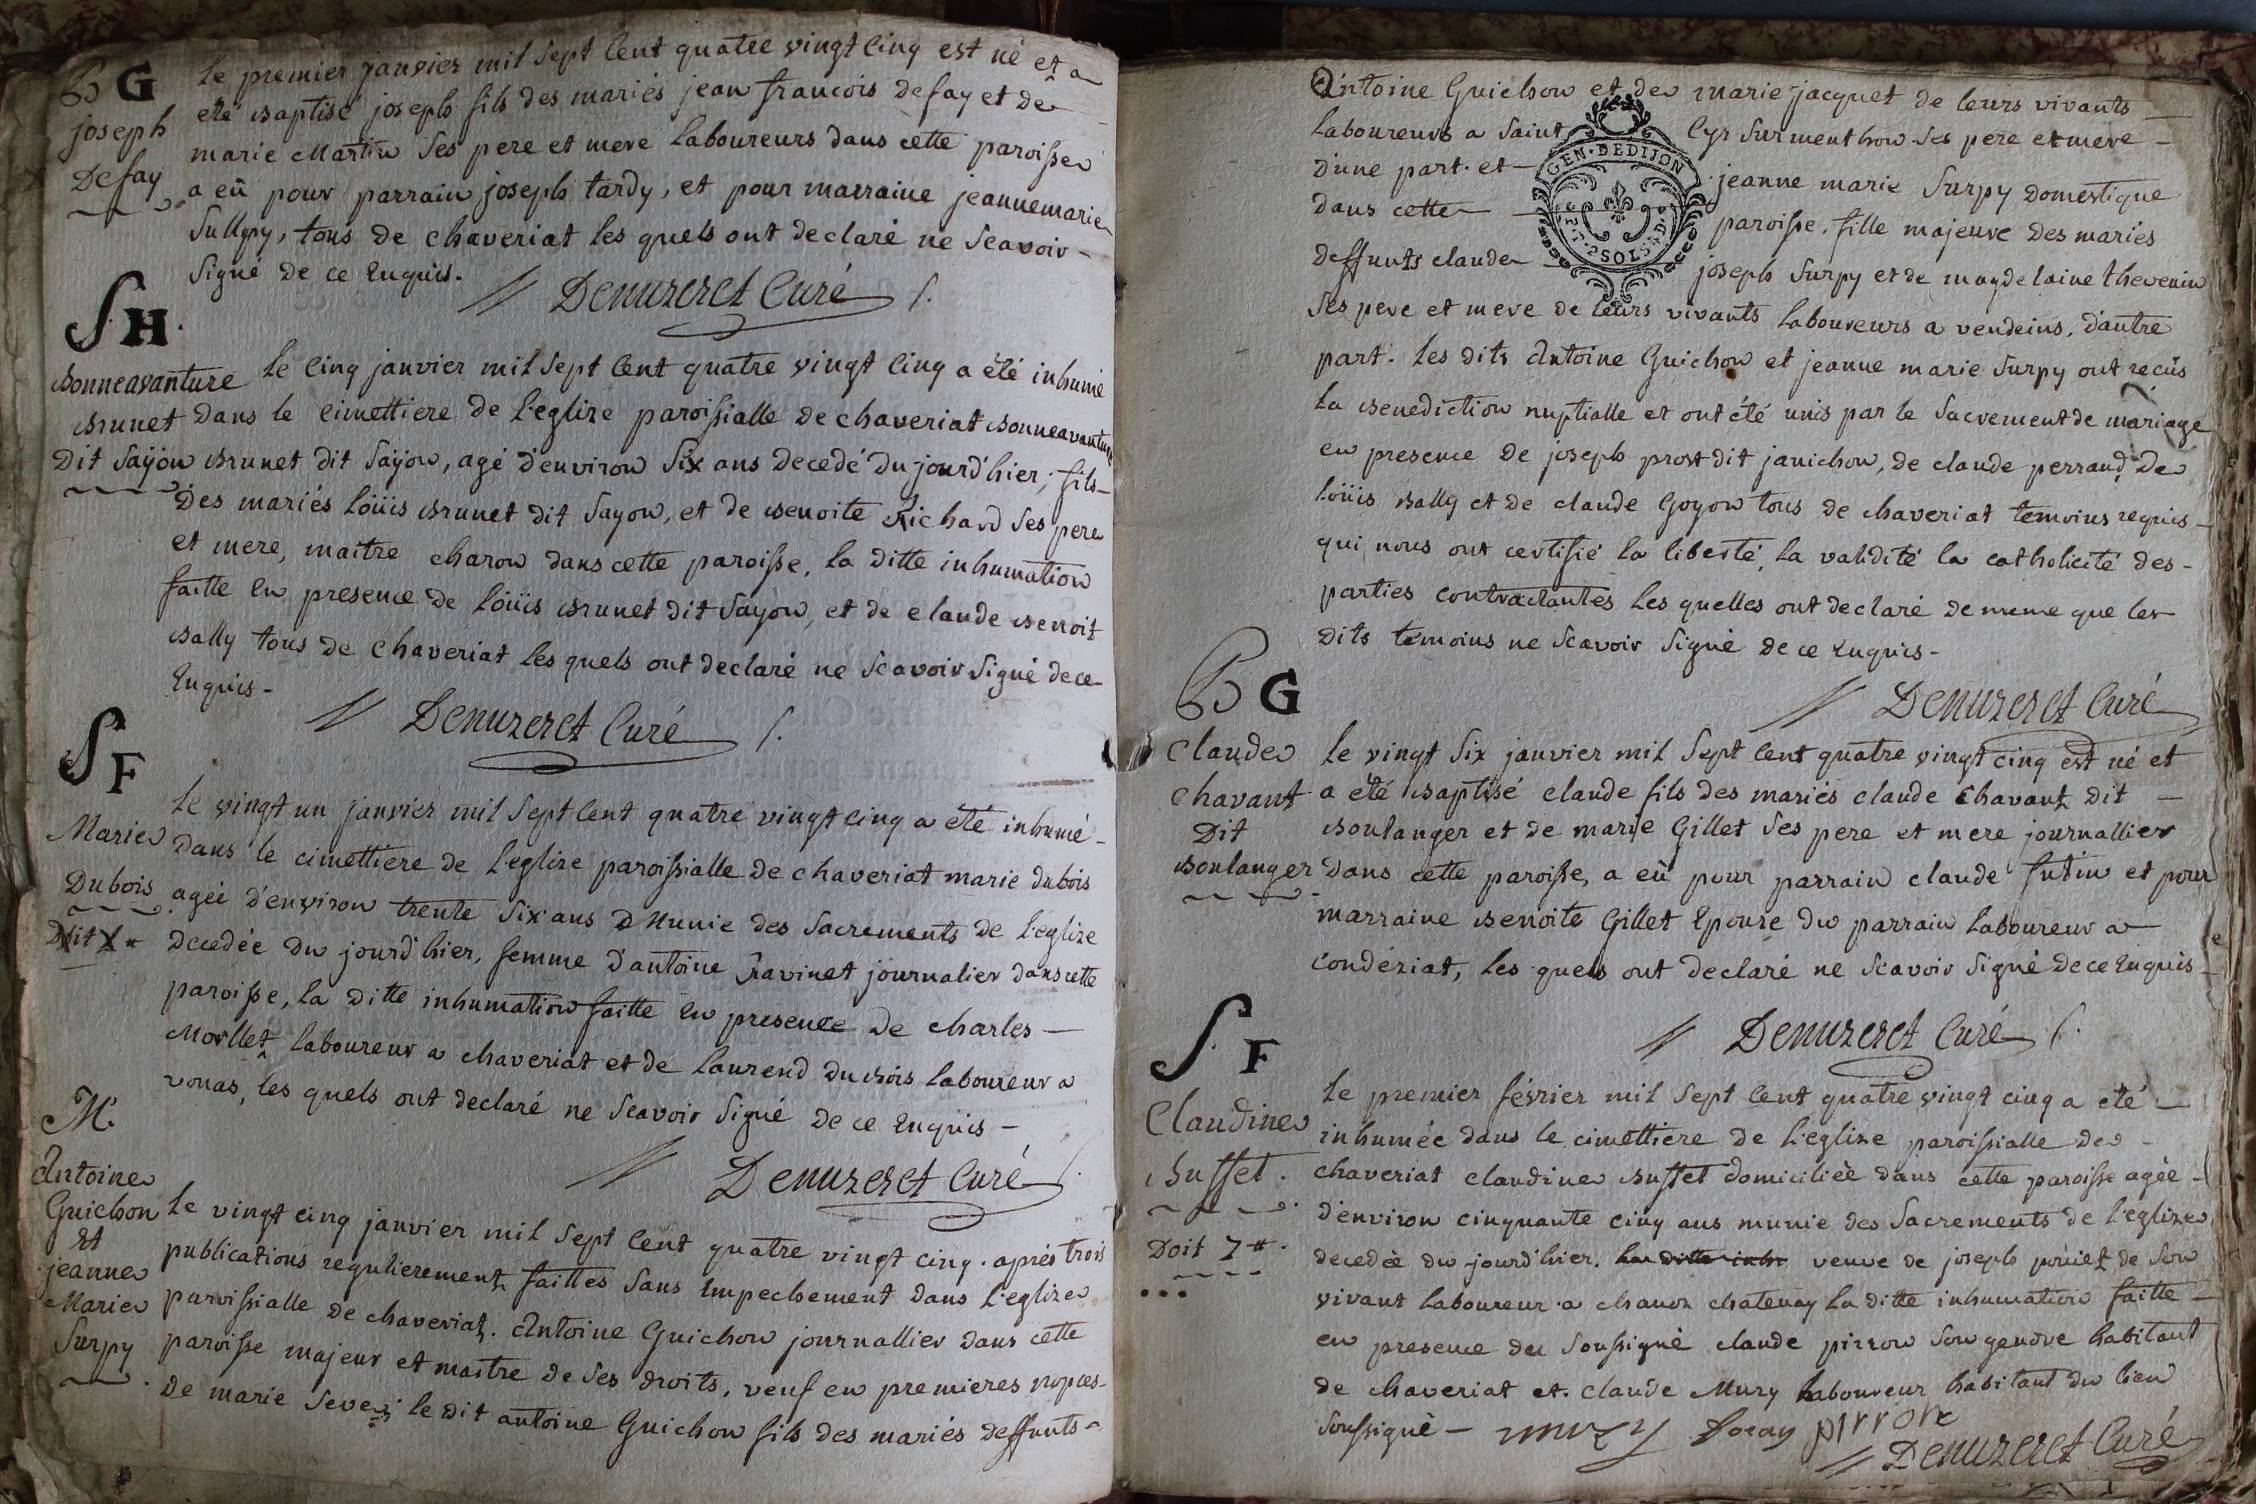 B G
joseph
Defay
le premier janvier mil sept Cent quatre vingt Cinq est né et a
eté Baptisé joseph fils des mariés jean francois defay et de
marie Martin ses pere et mere Laboureurs dans cette paroisse
a eû pour parrain joseph tardy, et pour marraine jeannemarie
Sulpy, tous de Chaveriat les quels ont declaré ne Scavoir -
Signé de ce Enquis.
Denuzeret Curé
S H.
Bonneavanture
Brunet
Dit Saÿon
Le Cinq janvier mil sept Cent quatre vingt Cinq a été inhumé
dans le cimettiere de L'eglize paroissialle de Chaveriat Bonneavanture
Brunet dit Saÿon, agé d'environ Six ans decedé du jourd'hier, fils -
des mariés Loüis Brunet dit Sayon, et de Benoite Richard Ses pere
et mere, maitre charon dans cette paroisse, la ditte inhumation
faitte en presence de Loüis Brunet dit Sayon, et de Claude Benoit
Bally tous de Chaveriat les quels ont declaré ne Scavoir Signé de ce
Enquis -
Denuzeret Curé
S F
Marie
Dubois
Le vingt un janvier mil sept Cent quatre vingt cinq a été inhumé -
dans le cimettiere de L'eglize paroissialle de Chaveriat marie dubois
agée d'environ trente Six ans Munie des Sacrements de L'eglize
decedée du jourd'hier, femme d'antoine Ravinet journalier dans cette
paroisse, la ditte inhumation faitte en presence de Charles -
Morllet Laboureur a chaveriat et de Laurend du Bois Laboureur a
vonas, les quels ont declaré ne Scavoir Signé de ce Enquis -
Denuzeret Curé
M.
Antoine
Guichon
Et
jeanne
Marie
Surpy
Le vingt cinq janvier mil sept Cent quatre vingt cinq. aprés trois
publications regulierement faittes Sans Empechement dans L'eglize
paroissialle de chaveriat. Antoine Guichon journallier dans cette
paroisse majeur et maitre de Ses droits, veuf en premieres nopces -
de marie Seve; le dit antoine Guichon fils des mariés deffunts -
Antoine Guichon et de marie jacquet de leurs vivants
Laboureurs a Saint Cyr Sur menthon Ses pere et mere -
d'une part. et - jeanne marie Surpy Domestique
dans cette - paroisse, fille majeure des mariés
deffunts claude joseph Surpy et de magdelaine thevenin
Ses pere et mere de leurs vivants Laboureurs a vendeins, d'autre
part. Les dits Antoine Guichon et jeanne marie Surpy ont recûs
La Benediction nuptialle et ont été unis par le Sacrement de mariage
en presence de joseph prost dit janichon, de claude perraud, De
Loüis Bally et de claude Goyon tous de chaveriat temoins requis -
qui nous ont certifié La liberté, La validité La catholicité des -
parties Contractantes Les quelles ont declaré de meme que les
dits temoins ne Scavoir Signé de ce Enquis -
Denuzeret Curé
GEN·DEDIJON
2SOLS
B G
Claude
Chavant
Dit
Boulanger
Le vingt Six janvier mil Sept Cent quatre vingt cinq est né et
a été Baptisé claude fils des mariés claude Chavant dit -
Boulanger et de marie Gillet Ses pere et mere journallier
dans cette paroisse, a eû pour parrain claude futin et pour
marraine Benoite Gillet Epouse du parrain Laboureur a
Condériat, Les quels ont declaré ne Scavoir Signé de ce Enquis -
Denuzeret Curé
S. F
Claudine
Buffet.
Doit 7#.
Le premier février mil Sept Cent quatre vingt cinq a eté -
inhumée dans le cimettiere de L'eglize paroissialle de -
chaveriat claudine Buffet domiciliée dans cette paroisse agée -
d'environ cinquante cinq ans munie des Sacrements de L'eglize
decedée du jourd'hier. La ditte inhu veuve de joseph poüiet de Son
vivant Laboureur a chanoz chatenay La ditte inhumation faitte -
en presence du Soussigné claude pirron Son gendre habitant
de chaveriat et. Claude Mury Laboureur habitant du lieu
Soussigné - mury pirron
Denuzeret Curé